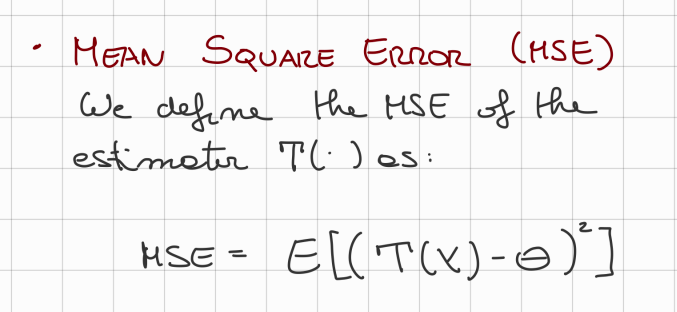 • MEAN SQUARE ERROR (MSE)
We define the MSE of the
estimator T(·) as:
MSE = E[(T(X)-θ)²]